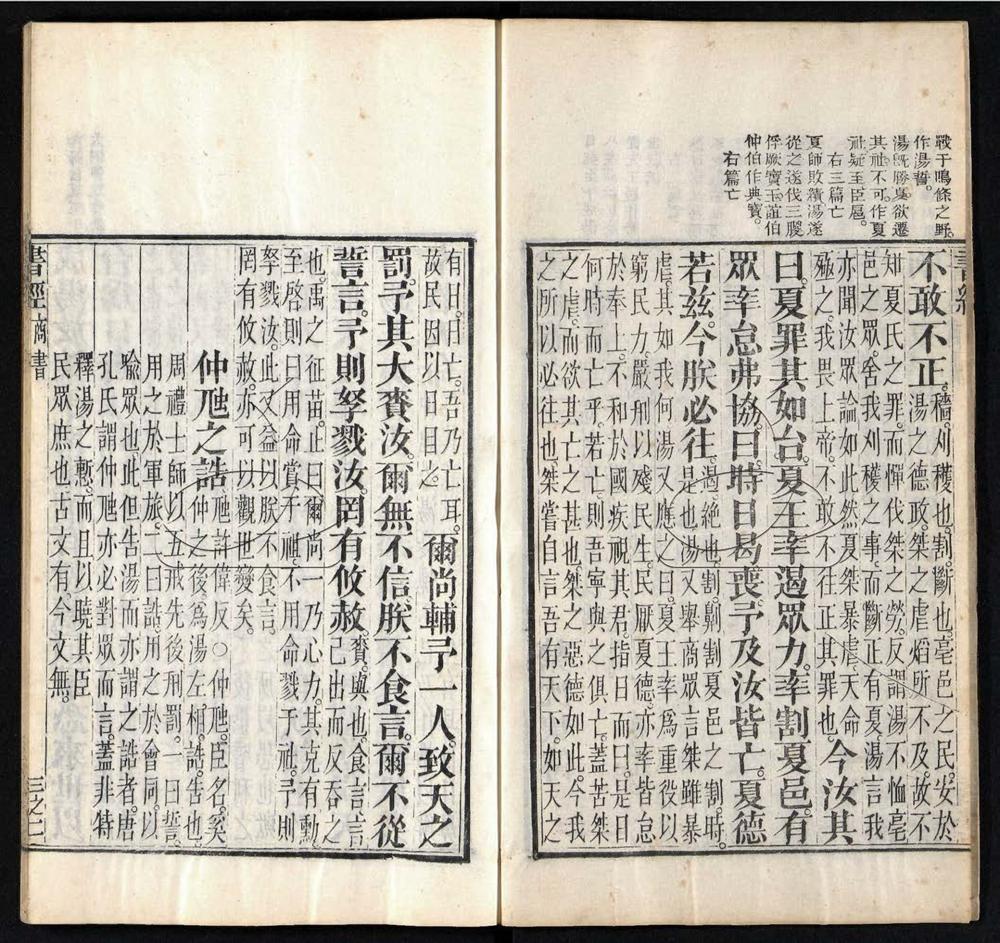 戰于鳴條之野。
作湯誓。
湯旣勝夏。欲遷
其社。不可。作夏
社疑至臣扈。
右三篇亡
夏師敗績湯遂
從之遂伐三朡
俘厥寶玉。誼伯
仲伯作典寶。
右篇亡
不敢不正。穡。刈穫也。割。斷也。亳邑之民。安於
湯之德政。桀之虐焰所不及。故不
知夏氏之罪。而憚伐桀之勞。反謂湯不恤亳
邑之眾。舍我刈穫之事。而斷正有夏。湯言我
亦聞汝眾論如此。然夏桀暴虐。天命
殛之。我畏上帝。不敢不往正其罪也。今汝其
曰。夏罪其如台。夏王率遏眾力。率割夏邑。有
眾率怠弗協。曰。時日曷喪。予及汝皆亡。夏德
若茲。今朕必往。遏。絕也。割。劓割夏邑之割。時。
是也。湯又舉商眾言桀雖暴
虐。其如我何。湯又應之曰。夏王率爲重役以
窮民力。嚴刑以殘民生。民厭夏德。亦率皆怠
於奉上。不和於國。疾視其君。指日而曰。是日
何時而亡乎。若亡。則吾寧與之俱亡。蓋苦桀
之虐。而欲其亡之甚也。桀之惡德如此。今我
之所以必往也。桀嘗自言。吾有天下。如天之
有日。日亡。吾乃亡耳。
故民因以日目之。爾尚輔予一人。致天之
罰。予其大賚汝。爾無不信。朕不食言。爾不從
誓言。予則孥戮汝。罔有攸赦。賚。與也。食言。言
已出而反吞之
也。禹之征苗。止曰爾尚一乃心力。其克有勳。
至啓則曰用命賞于祖。不用命戮于社。予則
孥戮汝。此又益以朕不食言。
罔有攸赦。亦可以觀世變矣。
仲虺之誥虺許偉反。○仲虺。臣名。奚
仲之後。爲湯左相。誥。告也。
周禮士師。以五戒先後刑罰。一曰誓。
用之於軍旅。二曰誥。用之於會同。以
喻眾也。此但告湯而亦謂之誥者。唐
孔氏謂仲虺亦必對眾而言。蓋非特
釋湯之慙。而且以曉其臣
民眾庶也。古文有今文無。
書經商書 三之二